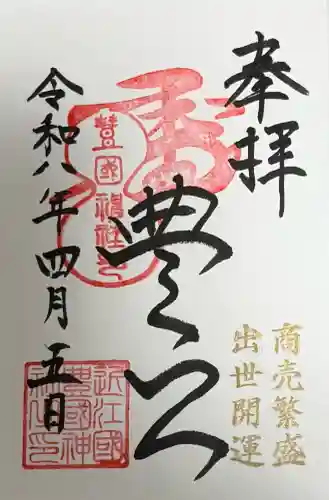 奉拝
商売繁盛
出世開運
豊公
豊國神社
令和八年四月五日
近江國
豊國神
社之印